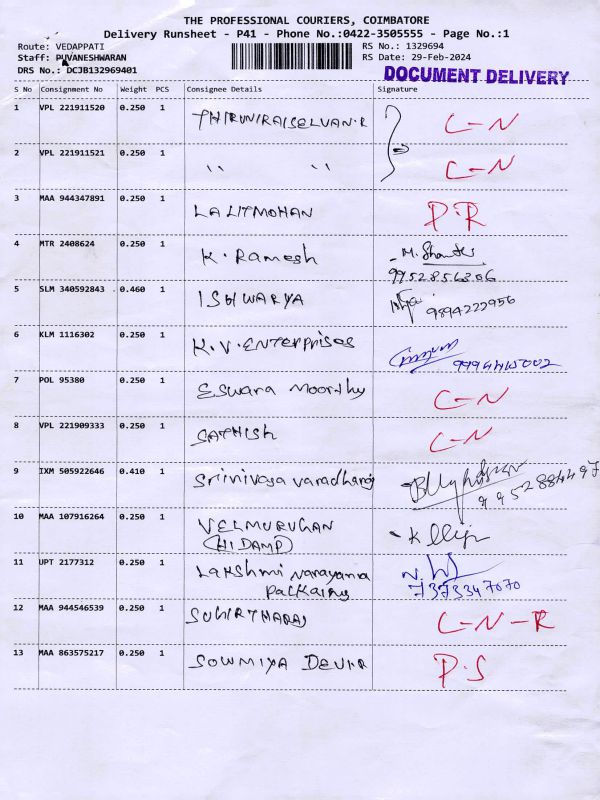 THE PROFESSIONAL COURIERS, COIMBATORE
Delivery Runsheet - P41 - Phone No.:0422-3505555 - Page No.:1
Route: VEDAPPATI RS No.: 1329694
Staff: PUVANESHWARAN RS Date: 29-Feb-2024
DRS No.: DCJB132969401 DOCUMENT DELIVERY
S No Consignment No Weight PCS Consignee Details Signature
1 VPL 221911520 0.250 1 C-N
2 VPL 221911521 0.250 1 " " C-N
3 MAA 944347891 0.250 1 LALITMOHAN P.R
4 MTR 2408624 0.250 1 K. Ramesh
9952856356
5 SLM 340592843 0.460 1 ISHWARYA 9894222956
6 KLM 1116302 0.250 1 K.V. ENTERPRISES
7 POL 95380 0.250 1 Eswara Moorthy C-N
8 VPL 221909333 0.250 1 SATHISH C-N
9 IXM 505922646 0.410 1 Srinivasa varadharaj
10 MAA 107916264 0.250 1 VELMURUGAN
(HIDAMP)
11 UPT 2177312 0.250 1 Lakshmi Narayana
Packaing 7373347070
12 MAA 944546539 0.250 1 SUHIRTHARAJ C-N-R
13 MAA 863575217 0.250 1 SOWMIYA P.S